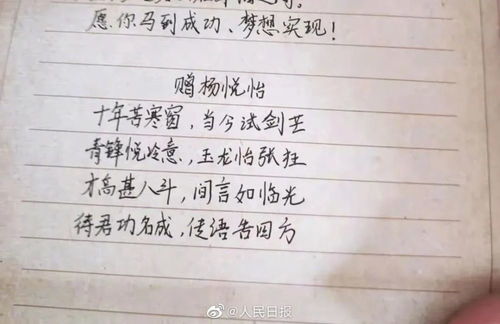 愿你马到成功、梦想实现！
赠杨悦怡
十年苦寒窗，当今试剑芒
青锋悦冷意，玉龙怡张狂
才高甚八斗，间言如临光
待君功名成，传语告四方
@人民日报